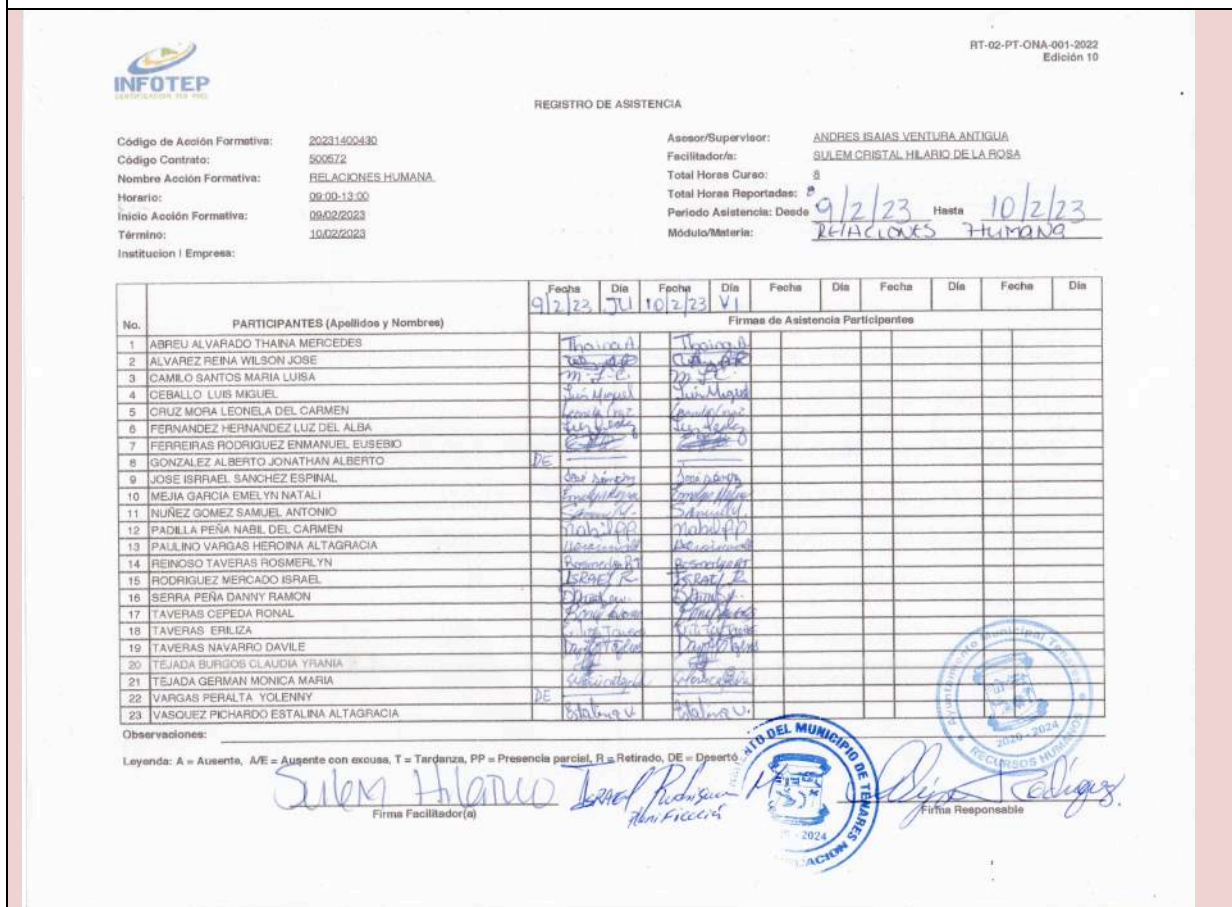 RT-02-PT-ONA-001-2022
Edición 10
INFOTEP
REGISTRO DE ASISTENCIA
Código de Acción Formativa: 20231400430
Código Contrato: 500572
Nombre Acción Formativa: RELACIONES HUMANA
Horario: 09:00-13:00
Inicio Acción Formativa: 09/02/2023
Término: 10/02/2023
Institucion | Empresa:
Asesor/Supervisor: ANDRES ISAIAS VENTURA ANTIGUA
Facilitador/a: SULEM CRISTAL HILARIO DE LA ROSA
Total Horas Curso: 8
Total Horas Reportadas: 8
Periodo Asistencia: Desde 9/2/23 Hasta 10/2/23
Módulo/Materia: RELACIONES HUMANA
Fecha Día Fecha Día Fecha Día Fecha Día Fecha Día
9/2/23 JU 10/2/23 VI
No. PARTICIPANTES (Apellidos y Nombres) Firmas de Asistencia Participantes
1 ABREU ALVARADO THAINA MERCEDES Thaina A Thaina A
2 ALVAREZ REINA WILSON JOSE
3 CAMILO SANTOS MARIA LUISA M.L.C. M.L.C.
4 CEBALLO LUIS MIGUEL Luis Miguel Luis Miguel
5 CRUZ MORA LEONELA DEL CARMEN Leonela Cruz Leonela Cruz
6 FERNANDEZ HERNANDEZ LUZ DEL ALBA
7 FERREIRAS RODRIGUEZ ENMANUEL EUSEBIO
8 GONZALEZ ALBERTO JONATHAN ALBERTO DE
9 JOSE ISRRAEL SANCHEZ ESPINAL
10 MEJIA GARCIA EMELYN NATALI
11 NUÑEZ GOMEZ SAMUEL ANTONIO
12 PADILLA PEÑA NABIL DEL CARMEN Nabil PP Nabil PP
13 PAULINO VARGAS HEROINA ALTAGRACIA
14 REINOSO TAVERAS ROSMERLYN
15 RODRIGUEZ MERCADO ISRAEL ISRAEL R ISRAEL R
16 SERRA PEÑA DANNY RAMON
17 TAVERAS CEPEDA RONAL
18 TAVERAS ERILIZA
19 TAVERAS NAVARRO DAVILE
20 TEJADA BURGOS CLAUDIA YRANIA
21 TEJADA GERMAN MONICA MARIA
22 VARGAS PERALTA YOLENNY DE
23 VASQUEZ PICHARDO ESTALINA ALTAGRACIA Estalina V. Estalina V.
Observaciones:
Leyenda: A = Ausente, A/E = Ausente con excusa, T = Tardanza, PP = Presencia parcial, R = Retirado, DE = Desertó
Sulem Hilario
Firma Facilitador(a)
ISRAEL Rodriguez
Firma Responsable
Ayuntamiento Municipal Tenares
2020 - 2024
RECURSOS HUMANOS
DEL MUNICIPIO DE TENARES
2024